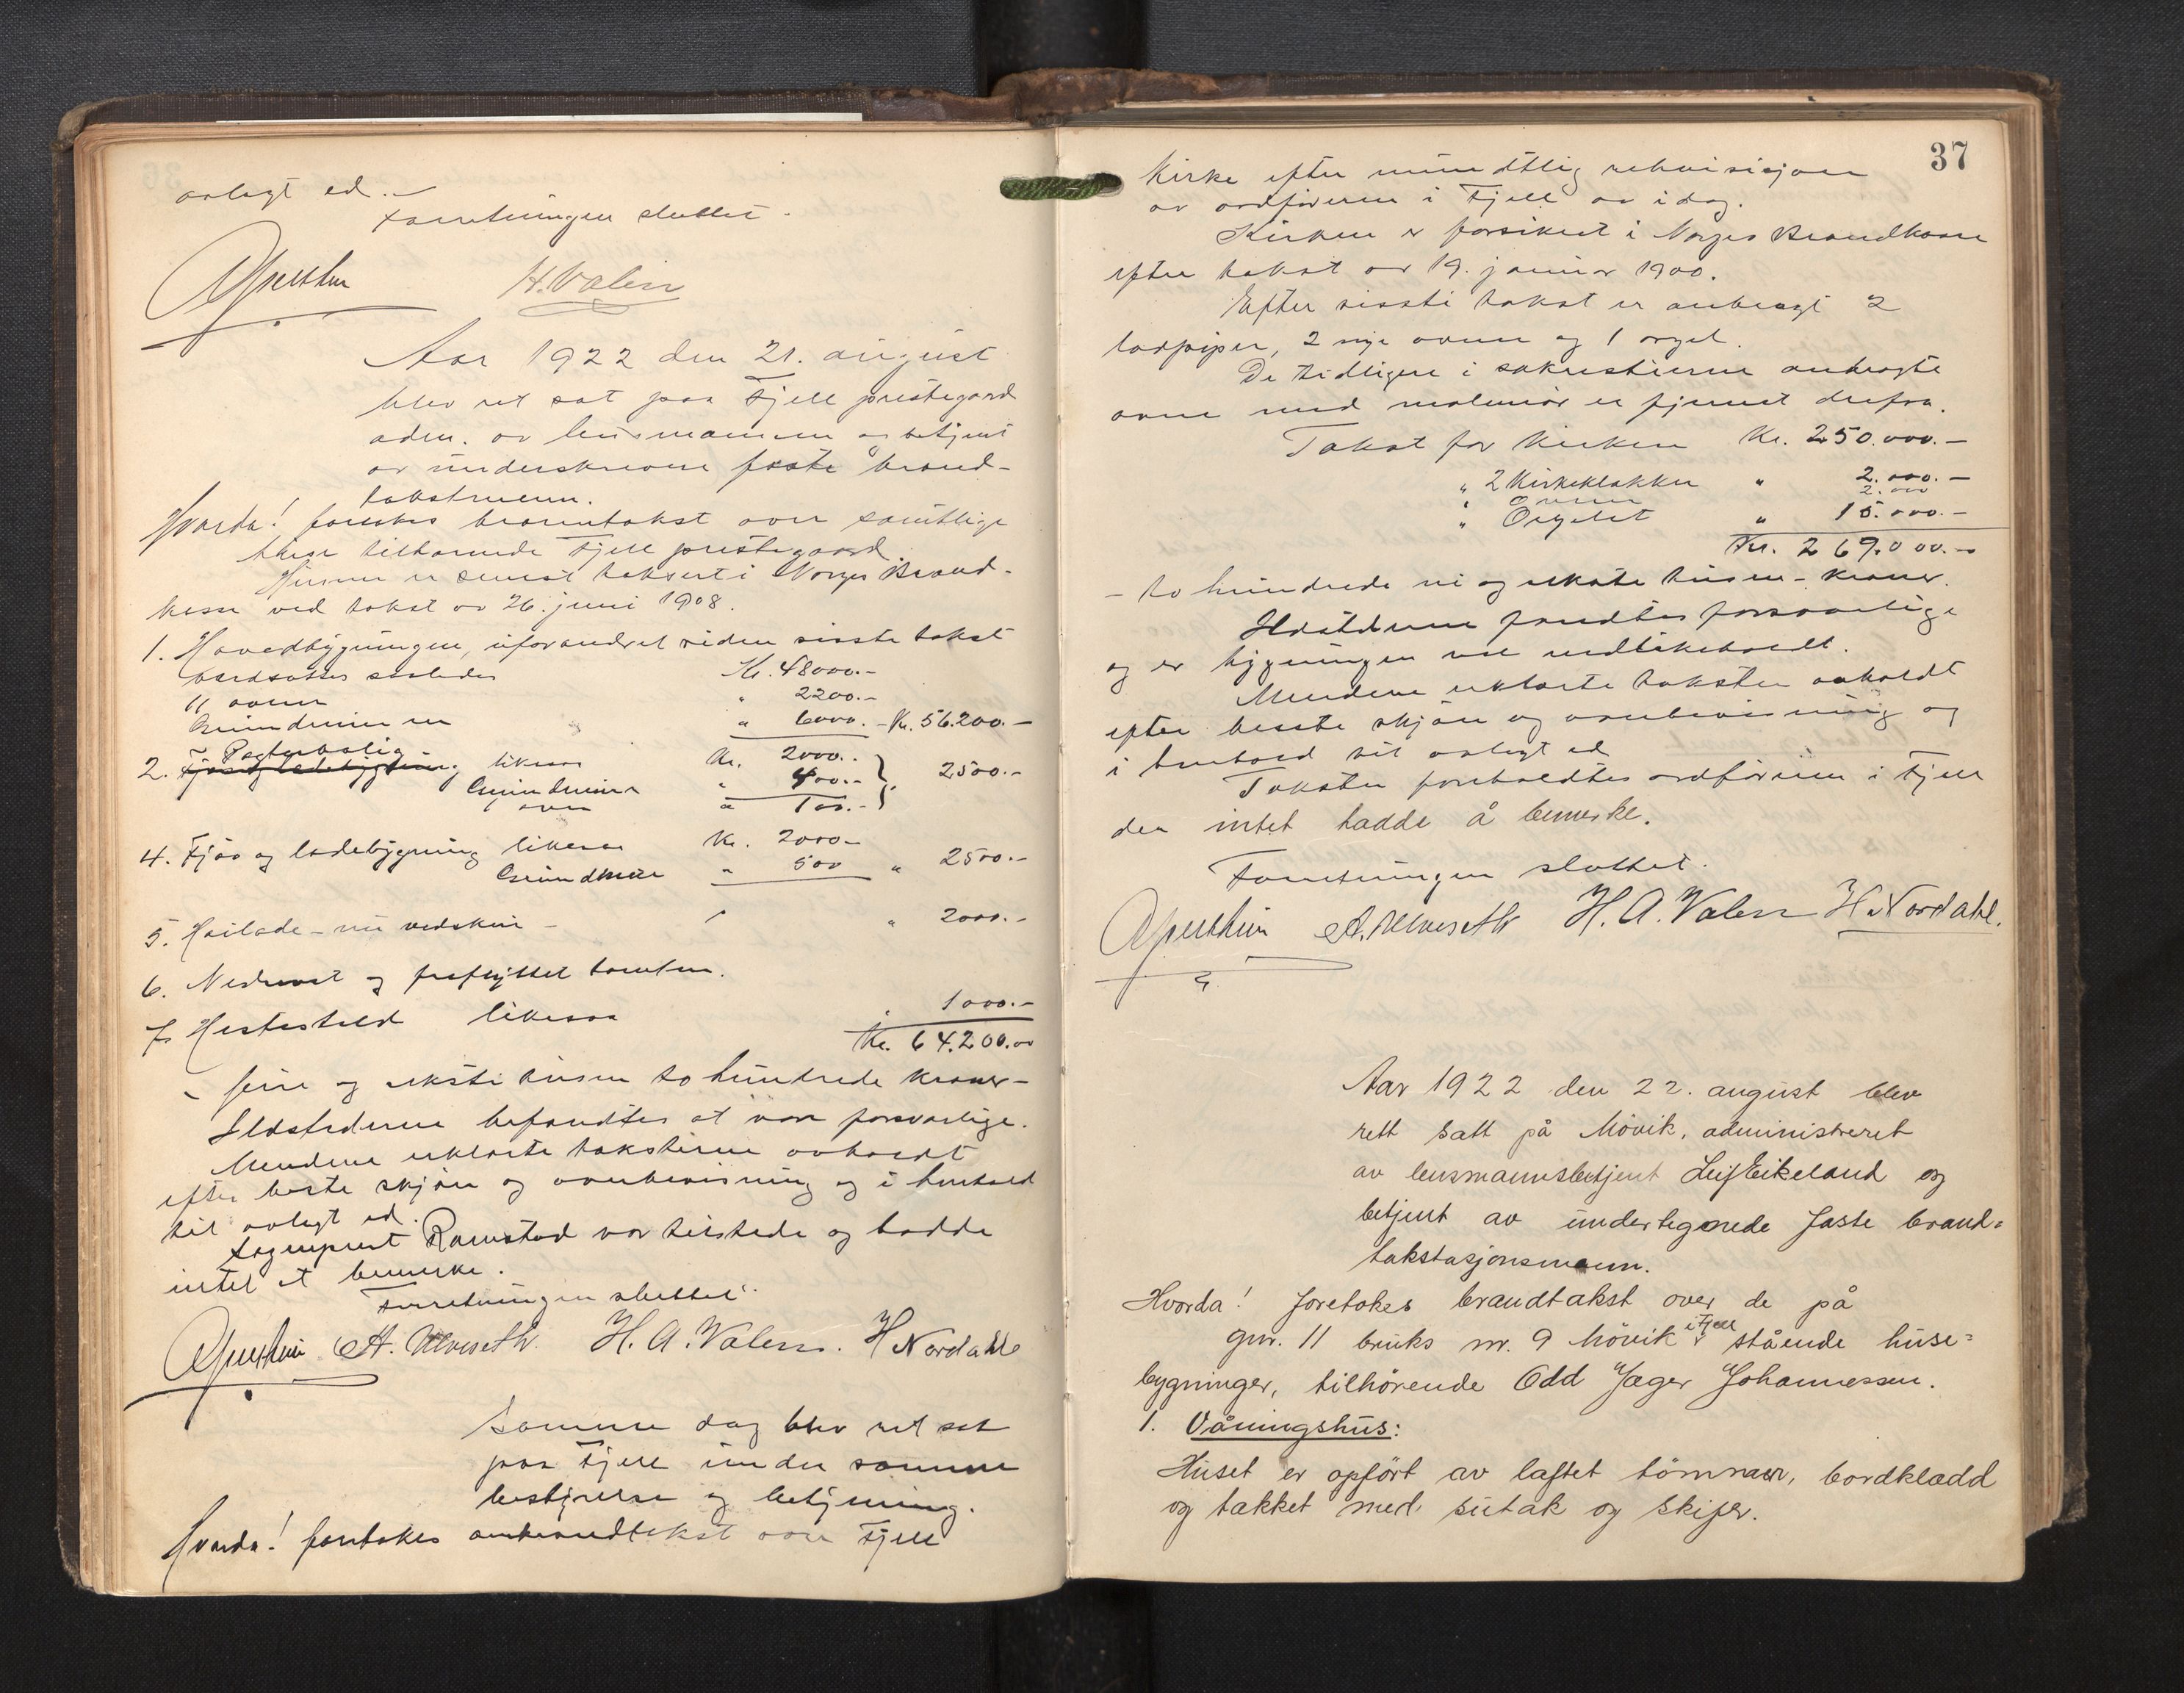 avlagt ed.-
Forretningen sluttet.
H. Valen
Aar 1922 den 21. august
blev ret sat paa Fjell prestegaard
adm. av lensmannen og betjent
av underskrevne faste brand-
takstmenn.
Hvorda! foretokes branntakst over samtlige
huse tilhørende Fjell prestegaard.
Husene er senest taksert i Norges Brand-
kasse ved takst av 26. juni 1908.
1. Hovedbygningen, uforandret siden sisste takst
værdsattes saaledes Kr. 48000.-
11 ovner " 2200.-
Grundmuren " 6000.- Kr. 56.200.-
2. Fjøs og ladebygning Pagterbolig likesaa Kr. 2000.-
Grundmur " 400.- 2500.-
1 ovn " 100.-
4. Fjøs og ladebygning likesaa Kr. 2000.-
Grundmur " 500 " 2500.-
5. Høilade - nu vedskur - " 2000.-
6. Nedrevet og fraflyttet tomten.
7. Hestestald likesaa " 1000.-
Kr. 64.200.00
- fire og seksti tusen to hundrede kroner -
Ildstederne befandtes at være forsvarlige.
Mendene erklærte taksterne avholdt
efter beste skjøn og overbevisning og i henhold
til avlagt ed.
Sogneprest Ramstad var tilstede og hadde
intet at bemerke.
Forretningen sluttet.
A. Ulveseth. H. A. Valen. H Nordahl
Samme dag blev ret sat
paa Fjell under samme
bestyrelse og betjening.
Hvorda! foretokes ombrandtakst over Fjell
37
Kirke efter mundtlig rekvisisjon
av ordføreren i Fjell av idag.
Kirken er forsikret i Norges Brandkasse
efter takst av 19. januar 1900.
Efter sissti takst er anbragt 2
lodpiper, 2 nye ovner og 1 orgel.
De tidligere i sakristierne anbragte
ovne med er fjernet derfra.
Takst for kirken Kr. 250.000.-
" 2 Kirkeklokker " 2.000.-
" Ovnene 2.000
" Orgelet " 15.000.-
Kr. 269.000.-
- to hundrede ni og seksti tusen - kroner.
Ildstederne fandtes forsvarlige
og er bygningen vel vedlikeholdt.
Mendene erklærte taksten avholdt
efter besste skjøn og overbevisning og
i henhold til avlagt ed
Taksten foreholdtes ordføreren i Fjell
der intet hadde å bemerke.
Forretningen sluttet.
A. Ulveseth H. A. Valen H Nordahl.
Aar 1922 den 22. august blev
rett satt på Mövik, administreret
av lensmannsbetjent Leif Eikeland og
betjent av undertegnede faste brand=
takstasjonsmenn.
Hvorda! foretokes brandtakst over de på
gnr. 11 bruks nr. 9 Mövik i Fjell stående huse=
bygninger, tilhørende Odd Jæger Johannessen.
1. Våningshus:
Huset er opført av laftet tömmer, bordklædd
og tækket med sutak og skifer.